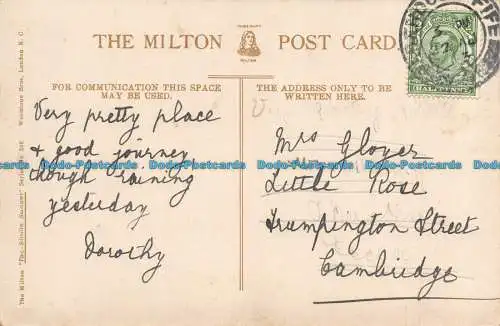 THE MILTON POST CARD
MILTON
FOR COMMUNICATION THIS SPACE
MAY BE USED.
THE ADDRESS ONLY TO BE
WRITTEN HERE.
Very pretty place
& good journey
though raining
yesterday
Dorothy
Mrs Glover
Little Rose
Trumpington Street
Cambridge
HALFPENNY
FIFE
Woolstone Bros, London E.C.
Dodo-Postcards Dodo-Postcards Dodo-Postcards Dodo-Postcards Dodo-Postcards